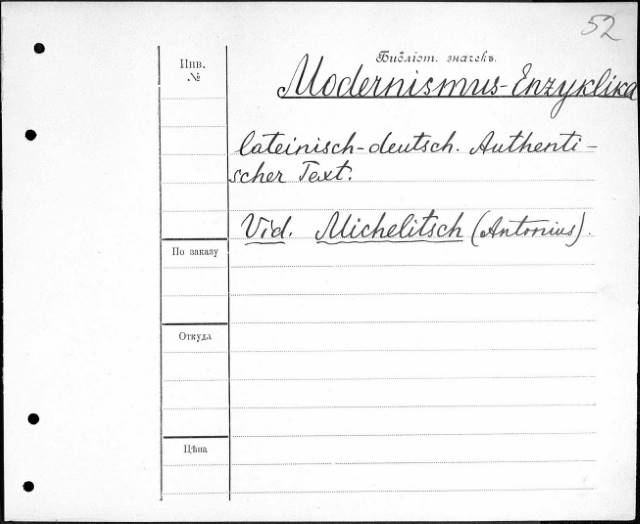 52
Библіот. значекъ.
Инв.
№
Modernismus-Enzyklika
lateinisch-deutsch. Authenti-
scher Text.
Vid. Michelitsch (Antonius).
По заказу
Откуда
Цѣна